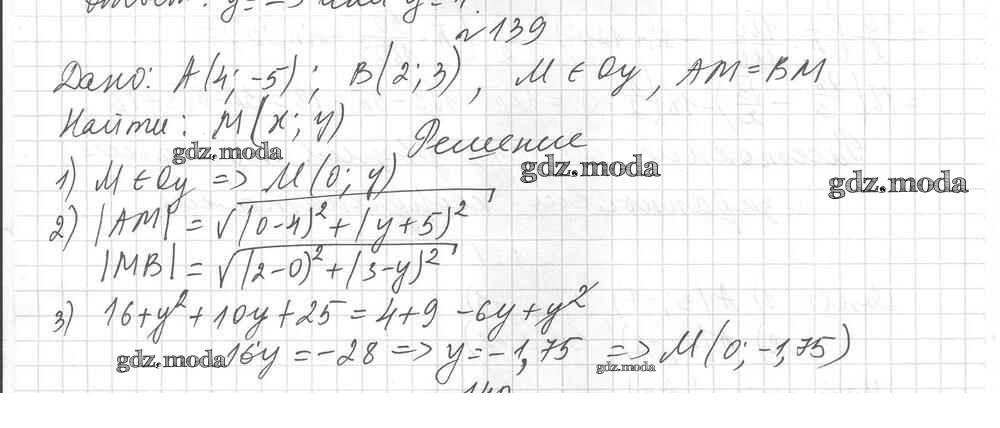 Ответ: y=-3 или y=
№139
Дано: A(4; -5); B(2; 3), M ∈ Oy, AM = BM
Найти: M(x; y)
Решение
gdz.moda
gdz.moda
gdz.moda
1) M ∈ Oy => M(0; y)
2) |AM| = √(0-4)²+(y+5)²
|MB| = √(2-0)²+(3-y)²
3) 16+y²+10y+25 = 4+9-6y+y²
gdz.moda 16y = -28 => y = -1,75 => M(0; -1,75)
gdz.moda
140